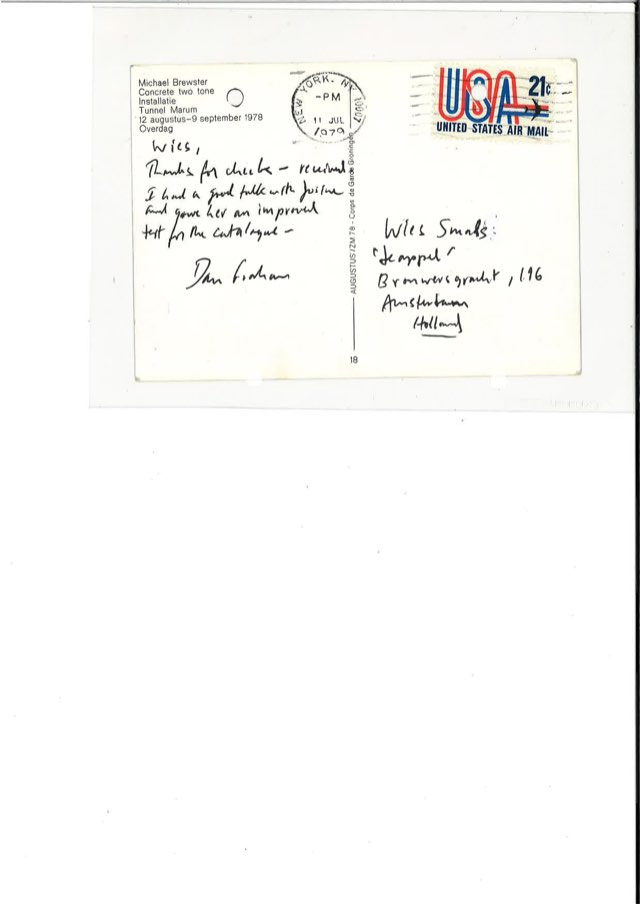 Michael Brewster
Concrete two tone
Installatie
Tunnel Marum
12 augustus–9 september 1978
Overdag
NEW YORK. NY 10007
-PM
11 JUL
1979
USA 21c
UNITED STATES AIR MAIL
Wies,
Thanks for checks – received
I had a good talk with
and gave her an improved
text for the catalogue –
Dan Graham
AUGUSTUS/ZM 78 - Corps de Garde Groningen
18
Wies Smals:
"de appel"
Brouwersgracht, 196
Amsterdam
Holland